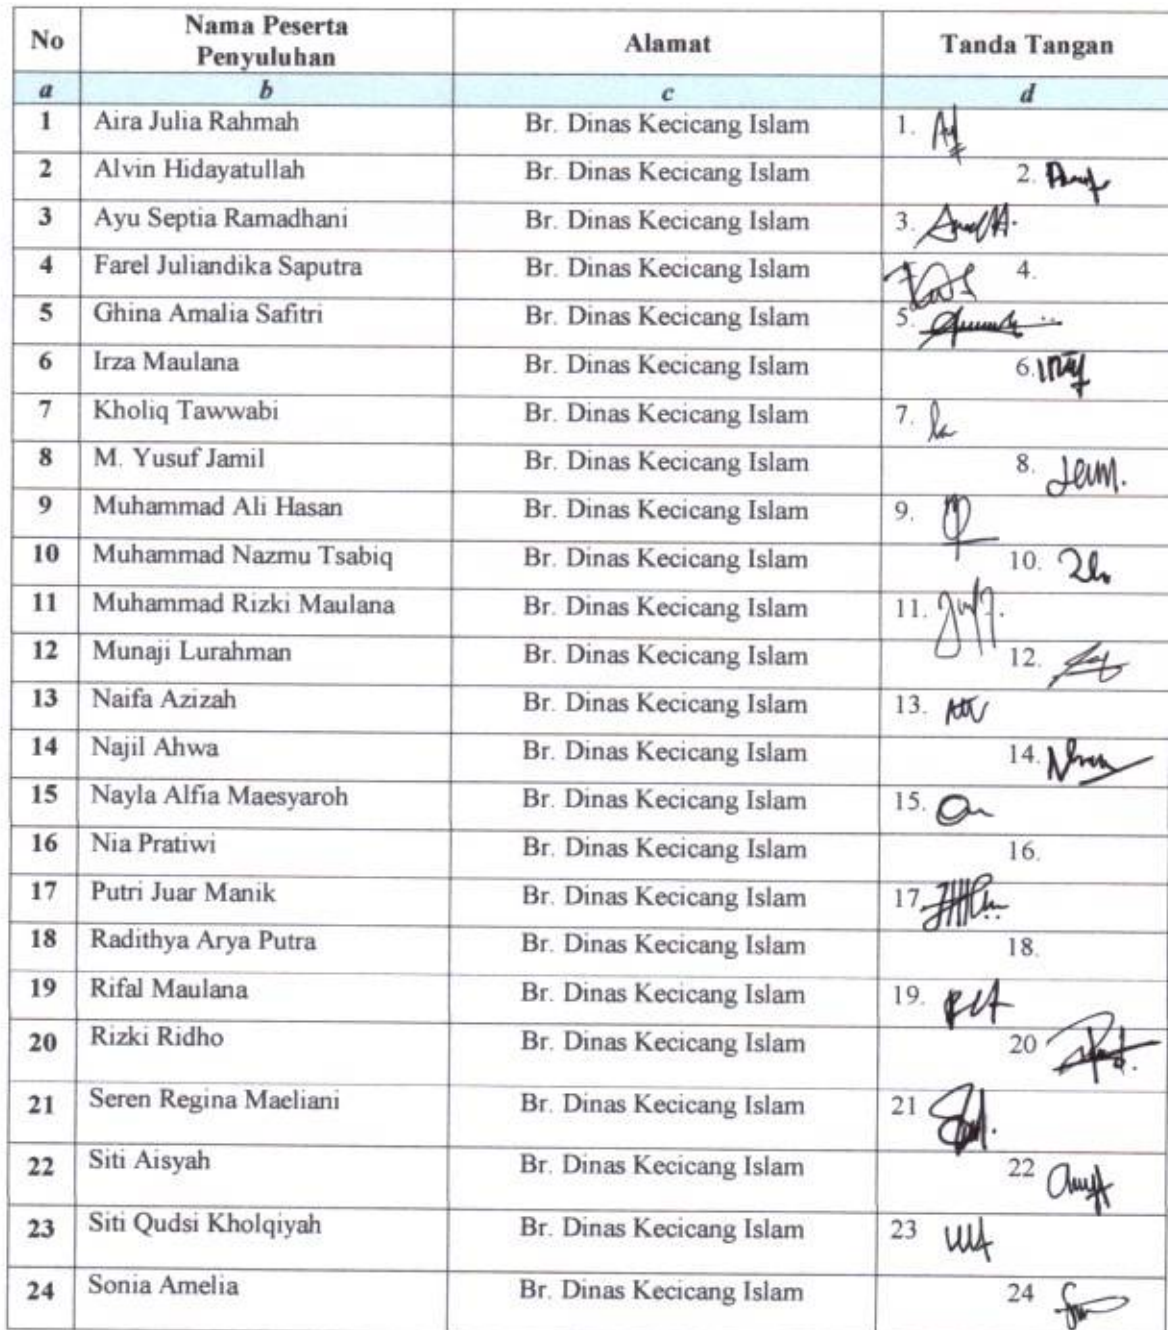 No Nama Peserta Penyuluhan Alamat Tanda Tangan
a b c d
1 Aira Julia Rahmah Br. Dinas Kecicang Islam 1.
2 Alvin Hidayatullah Br. Dinas Kecicang Islam 2.
3 Ayu Septia Ramadhani Br. Dinas Kecicang Islam 3.
4 Farel Juliandika Saputra Br. Dinas Kecicang Islam 4.
5 Ghina Amalia Safitri Br. Dinas Kecicang Islam 5.
6 Irza Maulana Br. Dinas Kecicang Islam 6.
7 Kholiq Tawwabi Br. Dinas Kecicang Islam 7.
8 M. Yusuf Jamil Br. Dinas Kecicang Islam 8.
9 Muhammad Ali Hasan Br. Dinas Kecicang Islam 9.
10 Muhammad Nazmu Tsabiq Br. Dinas Kecicang Islam 10.
11 Muhammad Rizki Maulana Br. Dinas Kecicang Islam 11.
12 Munaji Lurahman Br. Dinas Kecicang Islam 12.
13 Naifa Azizah Br. Dinas Kecicang Islam 13.
14 Najil Ahwa Br. Dinas Kecicang Islam 14.
15 Nayla Alfia Maesyaroh Br. Dinas Kecicang Islam 15.
16 Nia Pratiwi Br. Dinas Kecicang Islam 16.
17 Putri Juar Manik Br. Dinas Kecicang Islam 17.
18 Radithya Arya Putra Br. Dinas Kecicang Islam 18.
19 Rifal Maulana Br. Dinas Kecicang Islam 19.
20 Rizki Ridho Br. Dinas Kecicang Islam 20
21 Seren Regina Maeliani Br. Dinas Kecicang Islam 21
22 Siti Aisyah Br. Dinas Kecicang Islam 22
23 Siti Qudsi Kholqiyah Br. Dinas Kecicang Islam 23
24 Sonia Amelia Br. Dinas Kecicang Islam 24